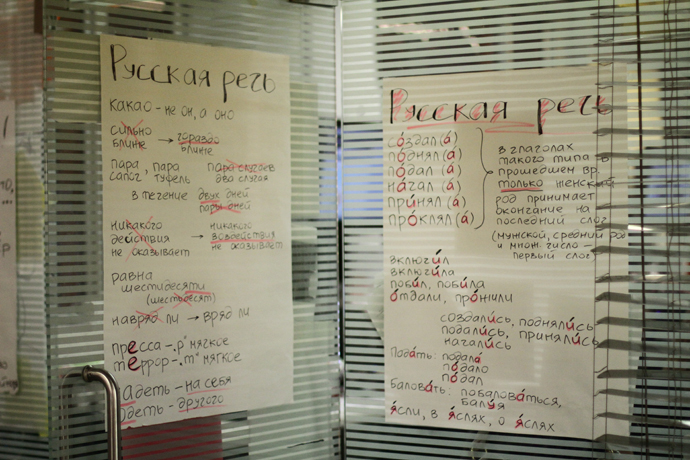 Русская речь
какао - не он, а оно
сильно → гораздо
ближе ближе
пара, пара пара случаев
сапог, туфель два случая
в течение двух дней
пары дней
никакого → никакого
действия воздействия
не оказывает не оказывает
равна
шестидесяти
(шестьдесят)
навряд ли → вряд ли
пресса - "р" мягкое
террор - "т" мягкое
надеть - на себя
одеть - другого
Русская речь
со́здал(а́)
по́днял(а́)
по́дал(а́)
на́чал(а́)
при́нял(а́)
про́клял(а́)
в глаголах
такого типа в
прошедшем вр.
только женский
род принимает
окончание на
последний слог
(мужской, средний род
и множ. число -
первый слог)
включи́л
включи́ла
поби́л, поби́ла
о́тдали, про́жили
создали́сь, подняли́сь
подали́сь, приняли́сь
начали́сь
Пода́ть: подала́
по́дало
по́дал
Балова́ть: побалова́ться,
балу́я
я́сли, в я́слях, о я́слях